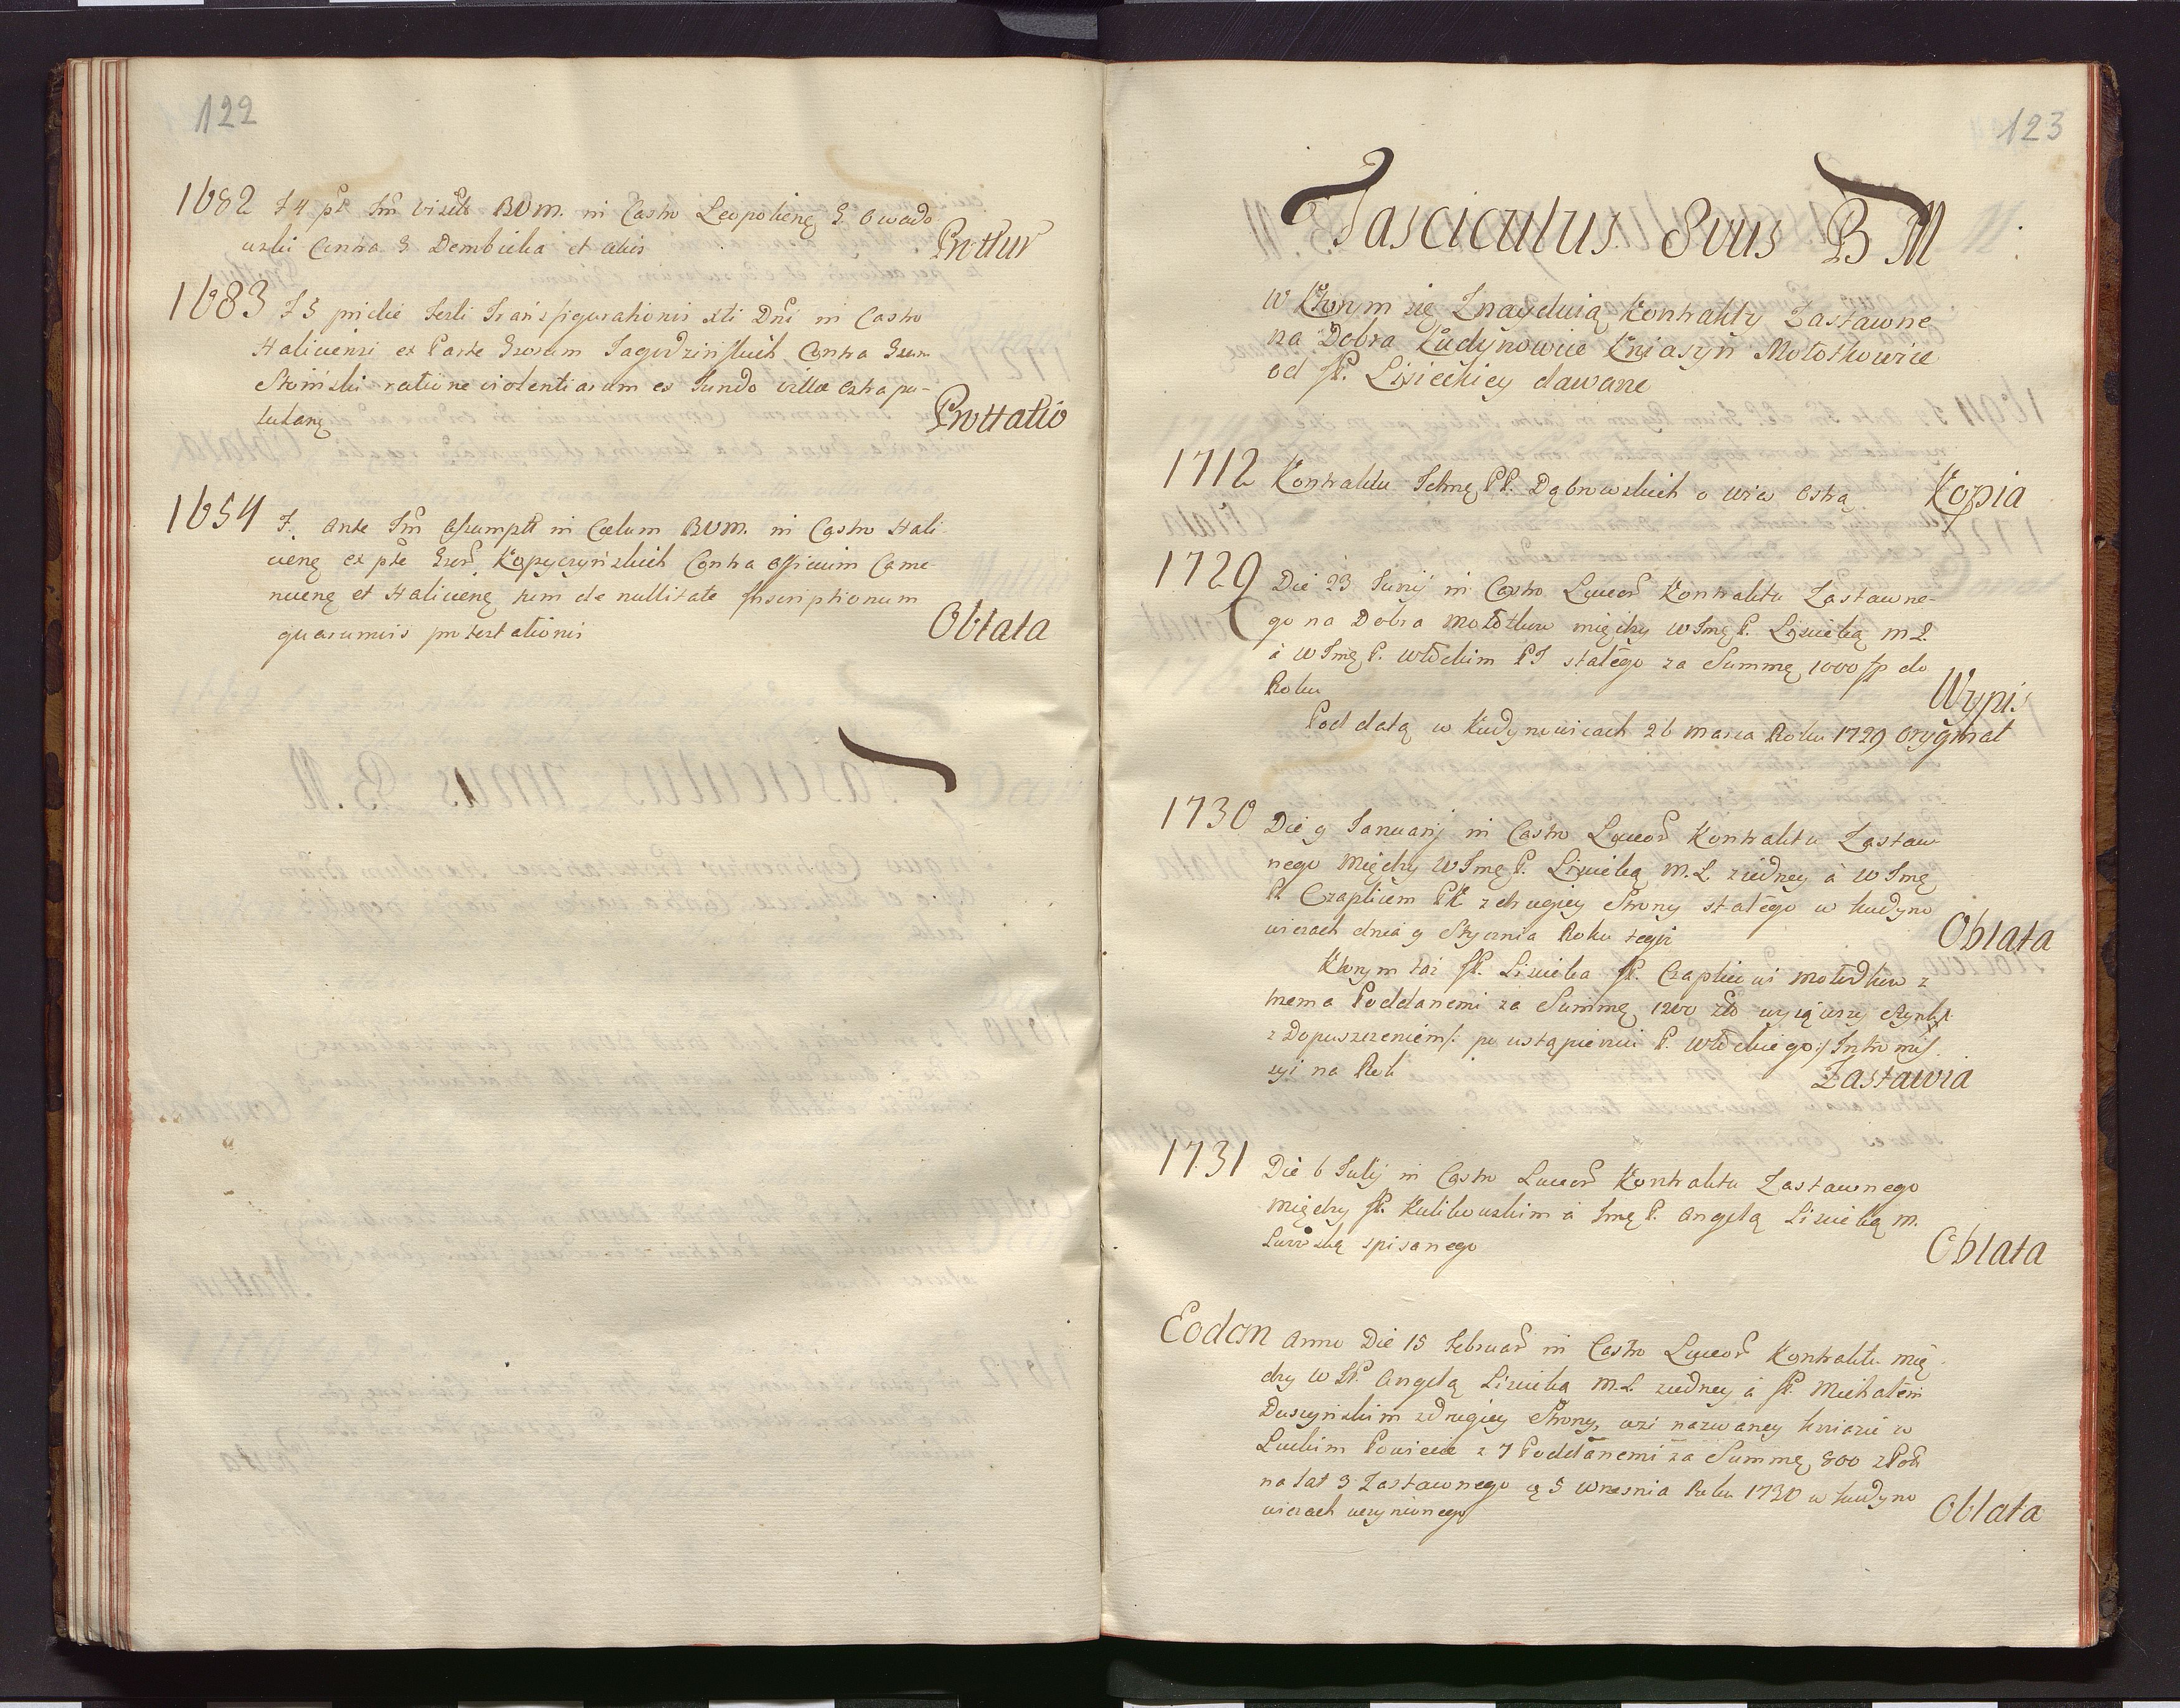 122
1682 F 4 pt Fm Visitt BVM. in Castro Leopoliens G. Owado
wski Contra G Dembicka et alios
Prottur
1683 F 3 pridie Festi Transfigurationis Xti Dni in Castro
Haliciensi ex Parte Grorum Jagodzinskich Contra Grum
Słoński ratione violentiarum ex fundo villæ Ostra pa-
tratarum
Prottatio
1654 F. Ante Fm Assumptt in Cœlum BVM. in Castro Hali
ciens ex pte Gror Kopyczyńskich Contra Officium Came
necens et Haliciens tum de nullitate Inscriptionum
quarumvis protestationis
Oblata
123
Fasciculus 8vus B M
w Ktorym się Znayduią Kontrakty Zastawne
na Dobra Kudynowice Kniasyn Mołotkowice
od JP. Lisieckiey dawane
1712 Kontraktu Ichmę PP. Dąbrowskich o wieś Ostrą Kopia
1729 Die 23 Junij in Castro Luceor Kontraktu Zastawne-
go na Dobra Mołotkow między WJmę P. Lisiecką m.L.
á WJmę P. Włockim PJ stałego za Summę 1000 fp do
Roku
Wypis
Pod datą w Kudynowicach 26 Marca Roku 1729 Oryginał
1730 Die 9 Januarij in Castro Luceor Kontraktu Zastaw
nego Między WJmę P. Lisiecką M.L ziedney á WJmę
P. Czaplicem PK z drugiey Strony stałego w Kudyno
wicach dnia 9 Stycznia Roku tegoż
Oblata
Ktorym taż JP. Lisiecka JP. Czaplicowi Mołotkow z
trzema Poddanemi za Summę 1200 zło wyiąwszy
z Dopuszczeniem /: po ustąpieniu P. Włockiego :/ Intromis
syi na Rok
Zastawia
1731 Die 6 Julij in Castro Luceor Kontraktu Zastawnego
między JP. Kulikowskim á Jmę P. Angelą Lisiecką M.
spisanego
Oblata
Eodem Anno Die 15 Februar in Castro Luceor Kontraktu mię
dzy WJP. Angelą Lisiecką M.L. ziedney á JP. Michałem
Duszyńskim zdrugiey Strony, wsi nazwaney Kniazie w
Luckim Powiecie z 7 Poddanemi za Summę 800 złPol
na lat 3 Zastawnego ą 5 Wrzesnia Roku 1730 w Kudyno
wicach uczynionego
Oblata